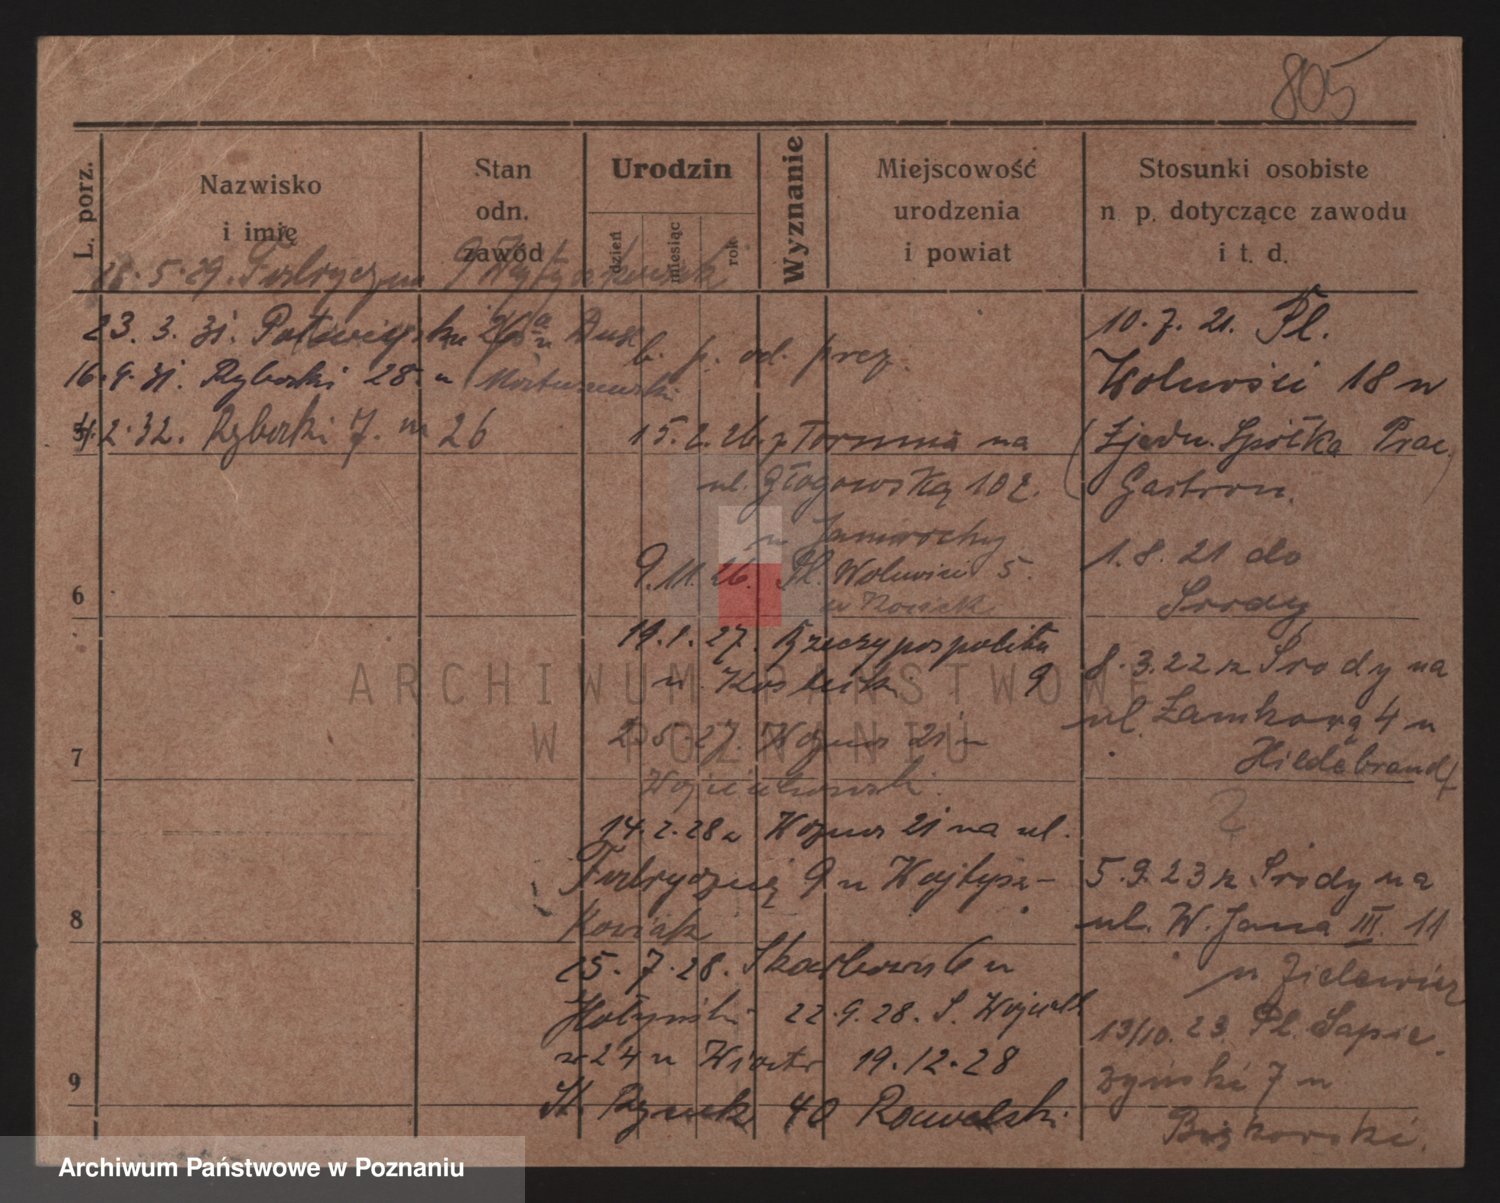 805
L. porz.
Nazwisko
i imię
Stan
odn.
zawód
Urodzin
dzień
miesiąc
rok
Wyznanie
Miejscowość
urodzenia
i powiat
Stosunki osobiste
n p. dotyczące zawodu
i t. d.
18.5.29. Fabryczna 9
23. 3. 31.
16.9.31. Rybaki 28
4.2.32. Rybaki 7. m 26
b. p. od. prez.
15.2.26. z Torunia na
ul. Głogowską 102.
9.11.26. Pl. Wolności 5.
19.1.27. Rzeczypospolita
9
2.5.27. 21 u
Wojciechowski.
14.2.28 z 21 na ul.
Fabryczną 9 u Wojtysz-
kowiak
25.7.28. Skarbowa 6 u
22.9.28. S. Wojciech
24 u 19.12.28
St. Rynek 40
10.7.21. Pl.
Wolności 18 u
(Zjedn. Spółka Prac.
Gastron.)
1.8.21 do
Środy
8.3.22 z Środy na
ul. Zamkową 4 u
Hildebrandt
?
5.9.23 z Środy na
ul. W. Jana III. 11
u Zielewicz
13/10. 23. Pl. Sapie-
żyński 7 u
6
7
8
9
ARCHIWUM PAŃSTWOWE
W POZNANIU
Archiwum Państwowe w Poznaniu